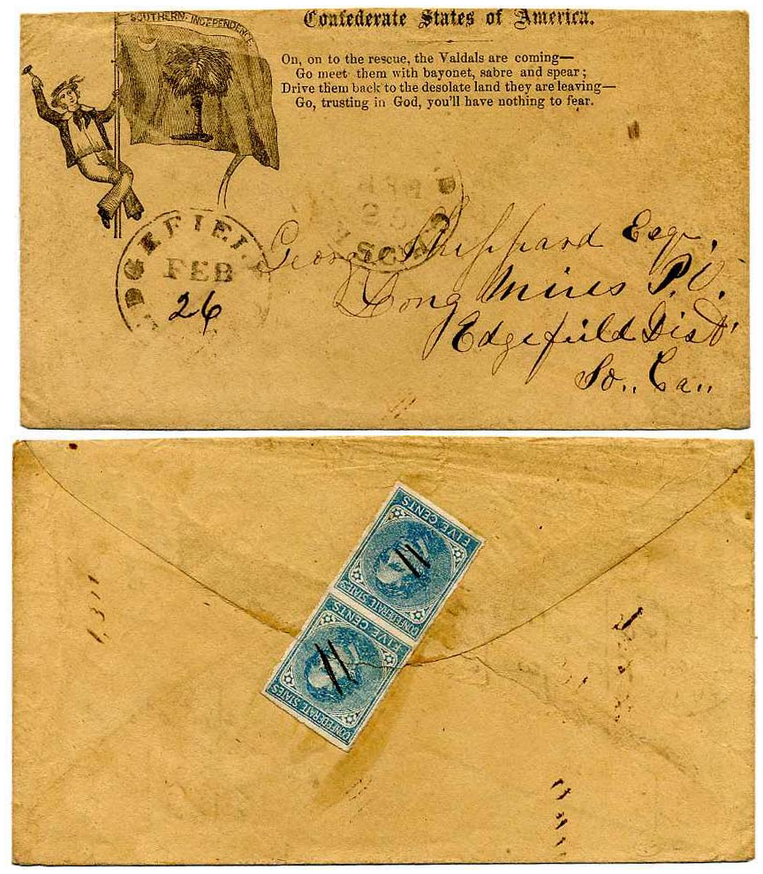 SOUTHERN INDEPENDENCE
Confederate States of America.
On, on to the rescue, the Valdals are coming—
Go meet them with bayonet, sabre and spear;
Drive them back to the desolate land they are leaving—
Go, trusting in God, you'll have nothing to fear.
EDGEFIEL
FEB
26
George Sheppard Esqr.
Long Mires P.O.
Edgefield Dist
So.. Ca..
FIVE CENTS
CONFEDERATE STATES
FIVE CENTS
CONFEDERATE STATES